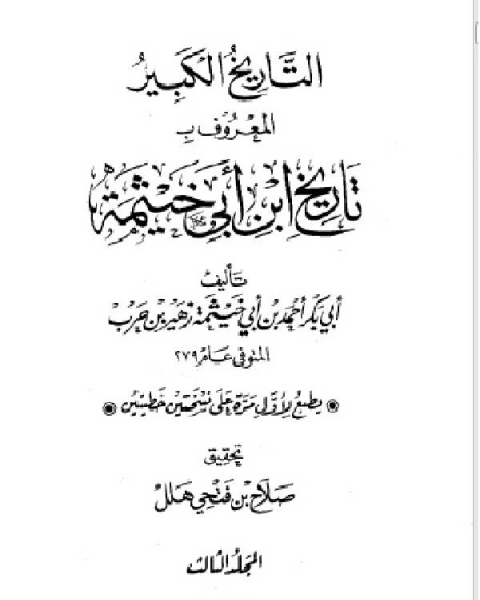 التَّارِيخُ الكَبِيرُ
المَعْرُوف بِ
تَارِيخِ ابْنِ أَبِي خَيْثَمَةَ
تَأليفُ
أَبِي بَكْر أَحْمَد بْن أَبِي خَيْثَمَة زُهَيْر بْن حَرْب
المتوفى عام ٢٧٩
يطبع لأوَّل مَرّة عَلى نُسْخَتَيْن خَطيَّتين
تحقيق
صَلَاح بْن فَتْحي هَلَل
المجَلّد الثالث